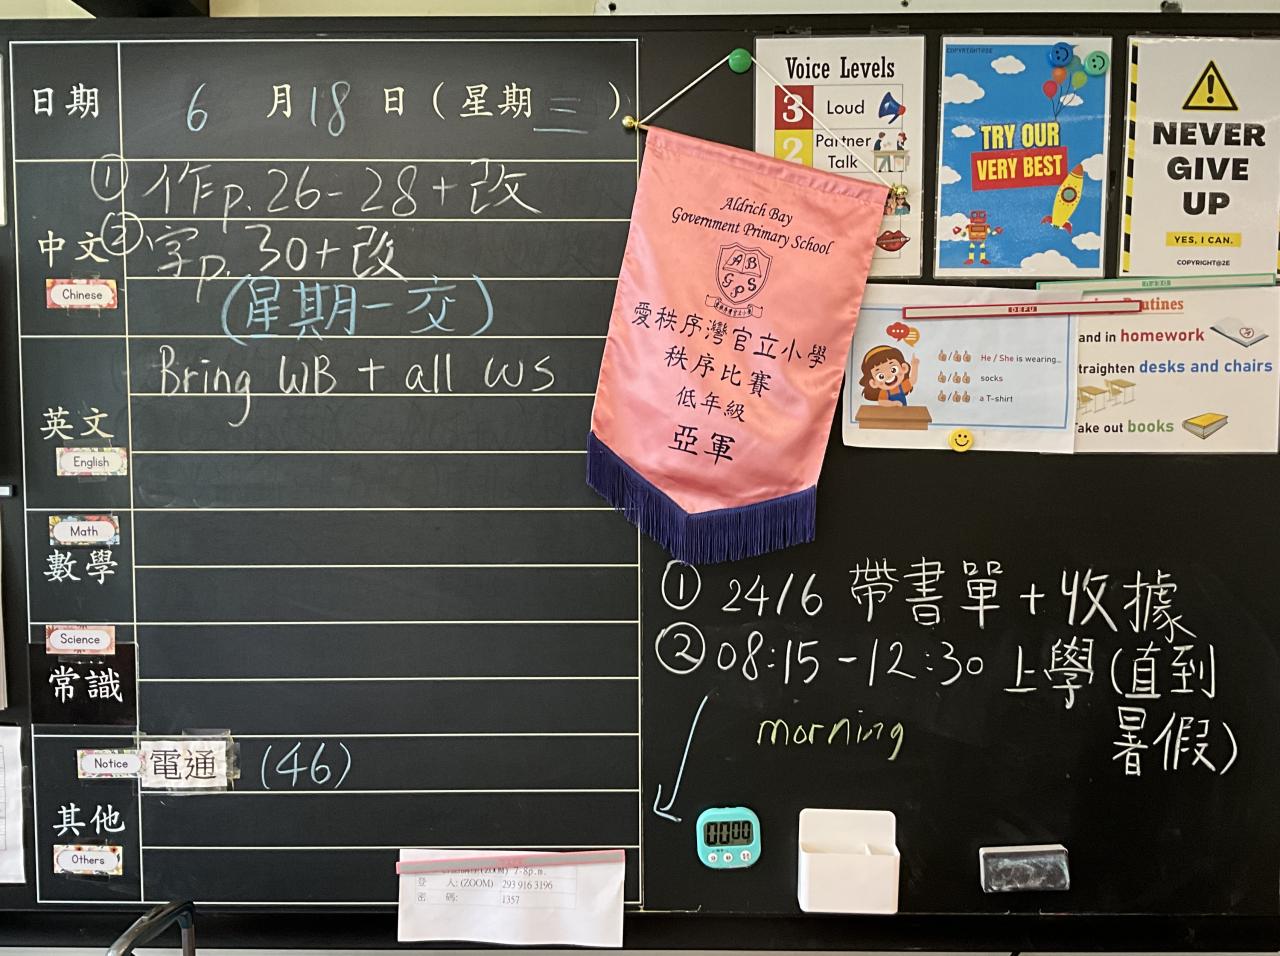 日期 6 月 18 日 ( 星期 三 )
中文
Chinese
① 作 p. 26 - 28 + 改
② 字 p. 30 + 改
(星期一交)
英文
English
Bring WB + all WS
Math
數學
Science
常識
Notice 電通 (46)
其他
Others
(ZOOM) 7-8p.m.
登 人: (ZOOM) 293 916 3196
密 碼: 1357
Aldrich Bay
Government Primary School
A B
G P S
愛秩序灣官立小學
秩序比賽
低年級
亞軍
Voice Levels
3 Loud
2 Partner Talk
COPYRIGHT@2E
TRY OUR
VERY BEST
NEVER
GIVE
UP
YES, I CAN.
COPYRIGHT@2E
DEFU
He / She is wearing...
socks
a T-shirt
Routines
and in homework
traighten desks and chairs
ake out books
① 24/6 帶書單 + 收據
② 08:15 - 12:30 上學 (直到
暑假)
morning
00 00